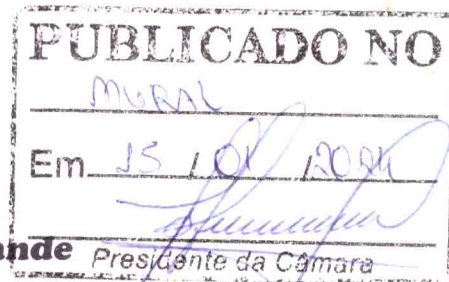 PUBLICADO NO
MURAL
Em 15 / 01 /
nde Presidente da Câmara